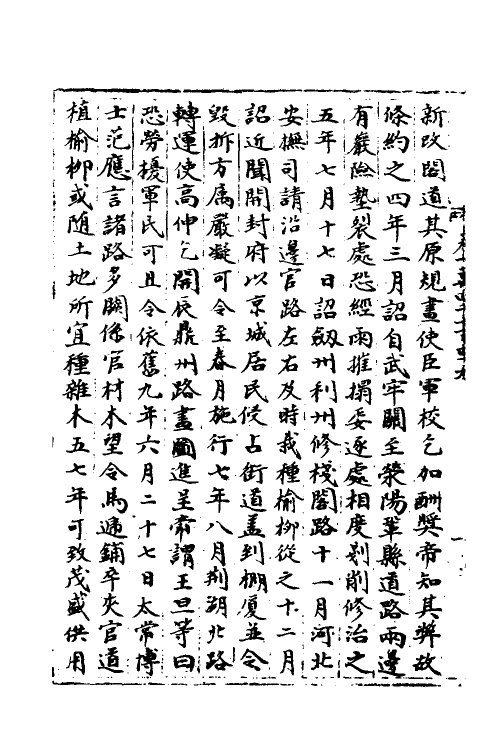 新改閣道其原規畫使臣軍校乞加酬奬帝知其弊故
條約之四年三月詔自武牢關至滎陽鞏縣道路兩邊
有巖險墊裂處恐經雨摧塌妥逐處相度剗削修治之
五年七月十七日詔劔州利州修棧閣路十一月河北
安撫司請沿邊官路左右及時栽種榆柳從之十二月
詔近聞開封府以京城居民侵占街道蓋到棚廈並令
毀拆方属嚴凝可令至春月施行七年八月荆湖北路
轉運使高仲乞開辰鼎州路畫圖進呈帝謂王旦等曰
恐勞擾軍民可且令依舊九年六月二十七日太常博
士范應言諸路多闕係官材木望令馬遞鋪卒夾官道
植榆柳或随土地所宜種雜木五七年可致茂盛供用